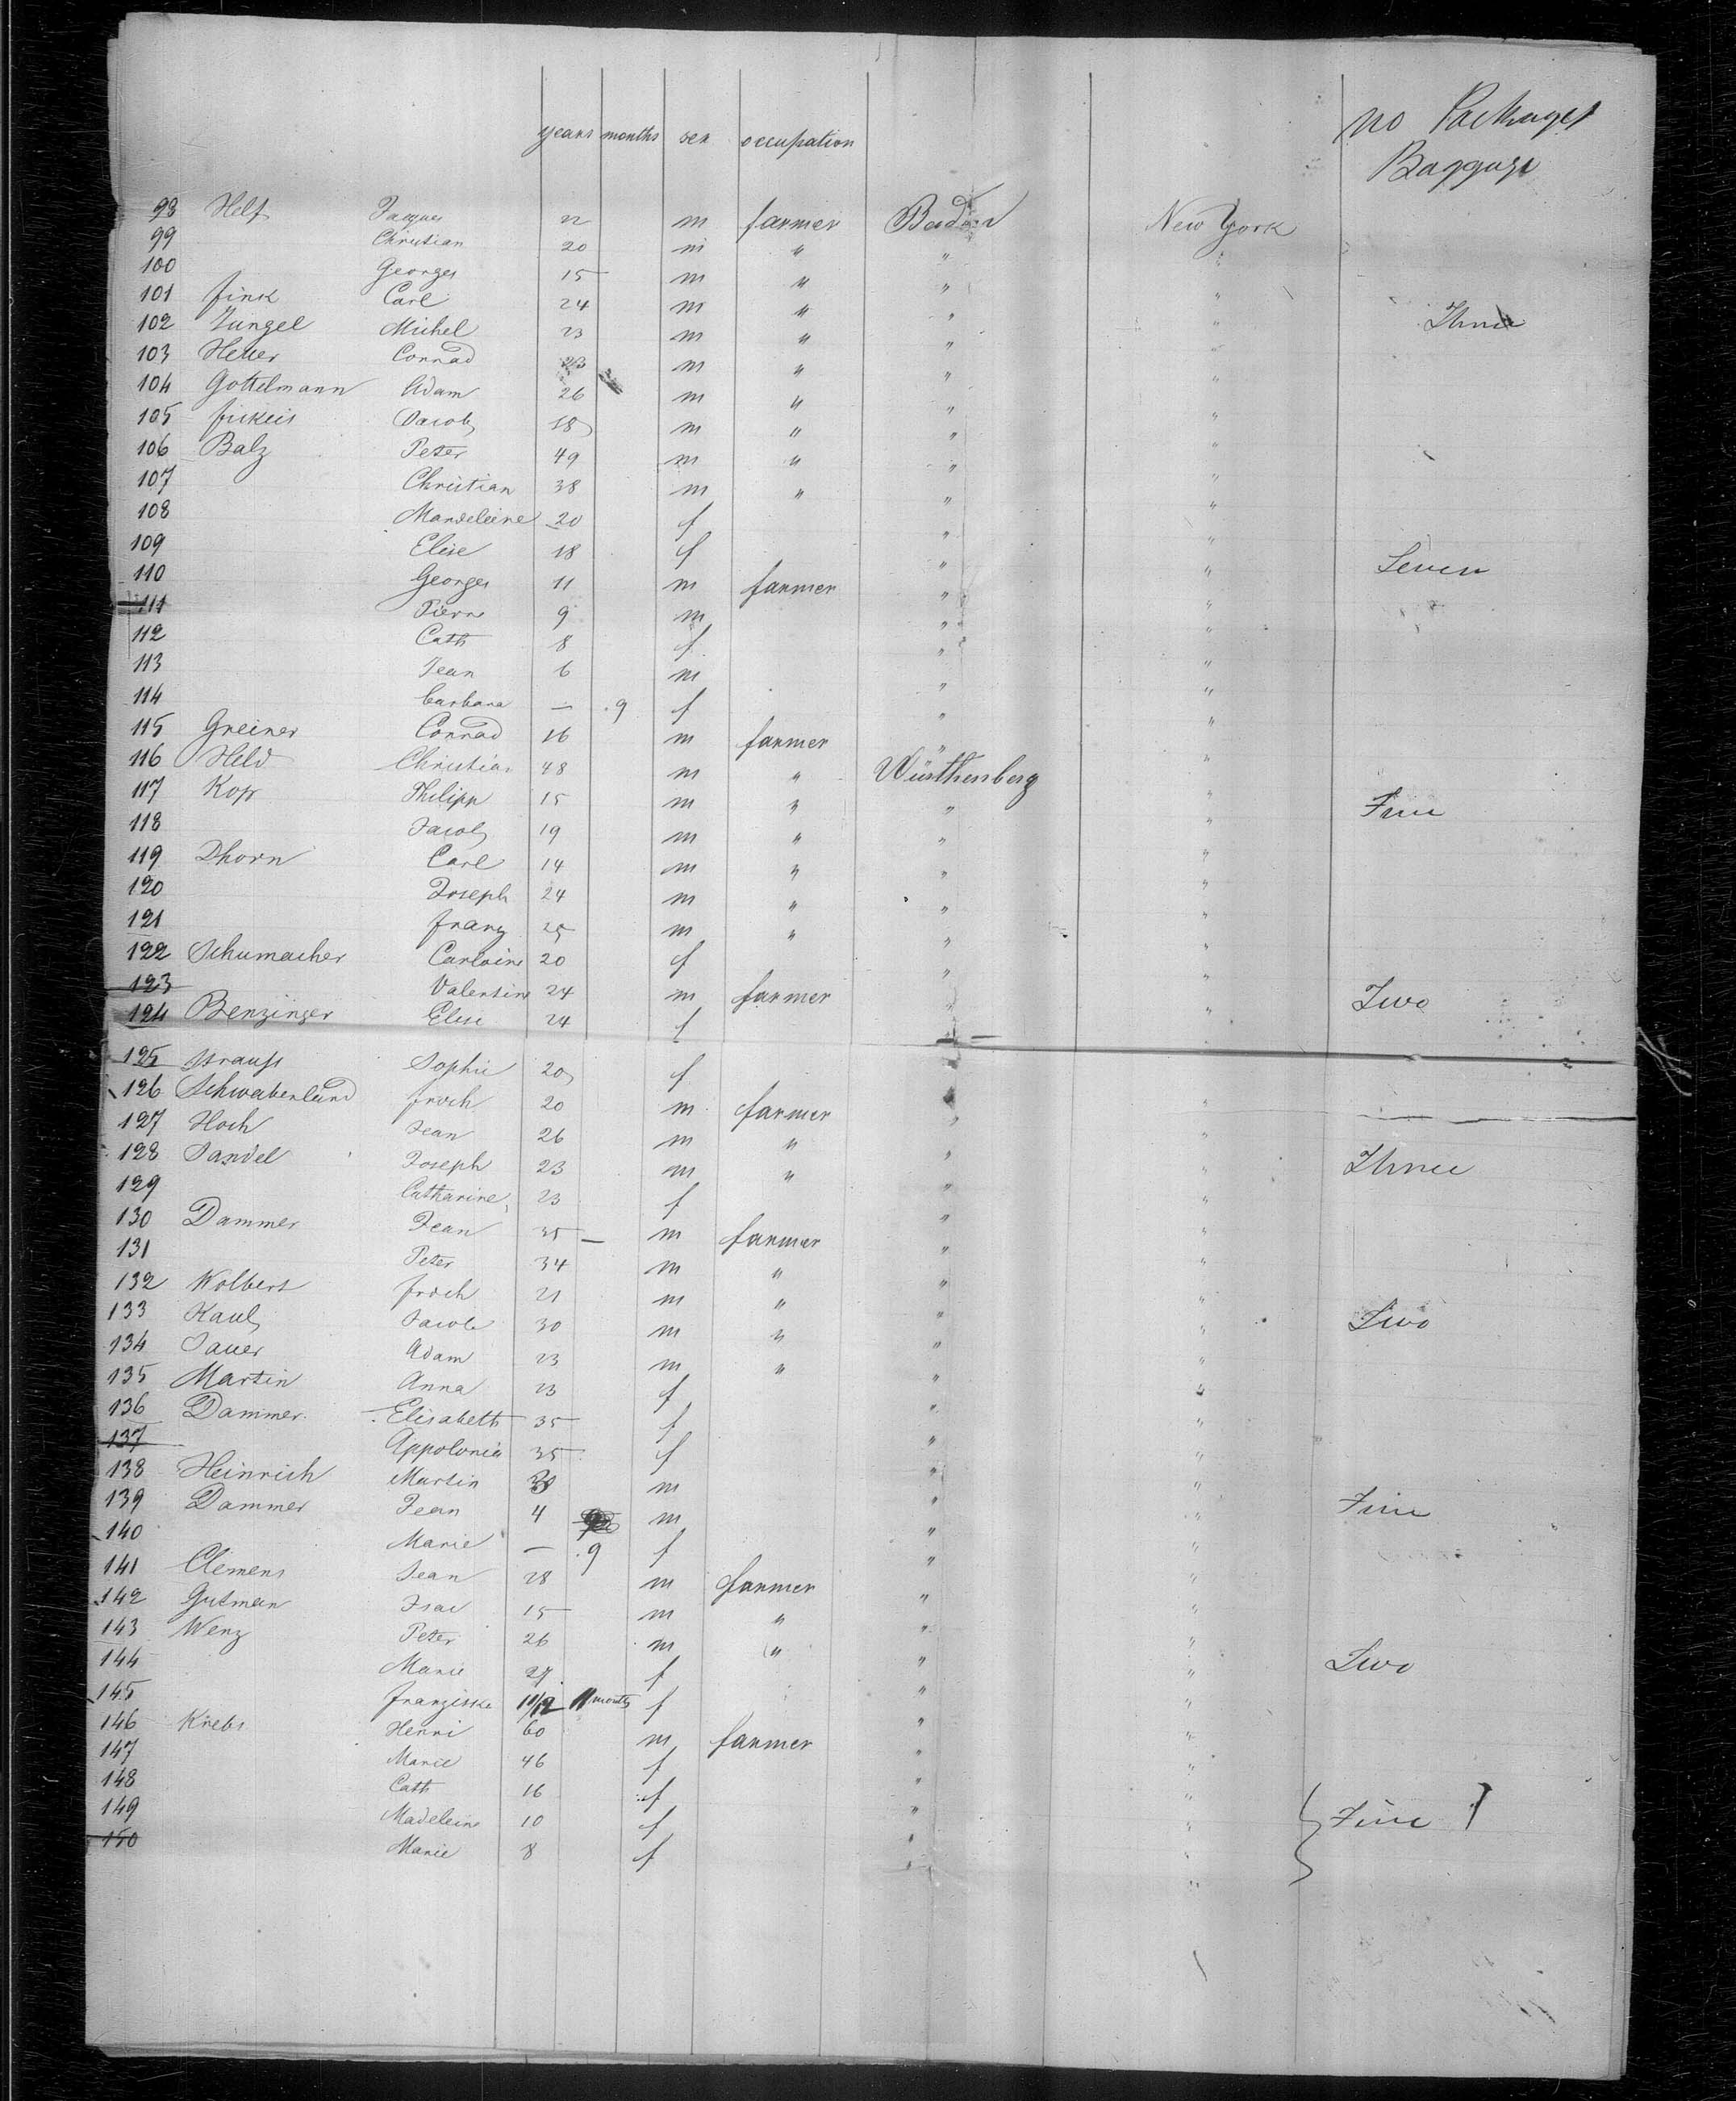 years months sex occupation no Packages
Baggage
98 Helf Jacques 22 m farmer Baden New York
99 Christian 20 m " " "
100 Georges 15 m " " "
101 fink Carl 24 m " " "
102 Jungel Michel 23 m " " " Three
103 Heller Conrad 23 m " " "
104 Gottelmann Adam 26 m " " "
105 Jacob 18 m " " "
106 Balz Peter 49 m " " "
107 Christian 38 m " " "
108 Mandeleine 20 f " "
109 Elise 18 f " "
110 Georges 11 m farmer " " Seven
111 Pierre 9 m " "
112 Cath 8 f " "
113 Jean 6 m " "
114 barbara — 9 f " "
115 Greiner Conrad 16 m farmer " "
116 Held Christian 48 m " Würthenberg "
117 Kop Philipp 15 m " " " Five
118 Jacob 19 m " " "
119 Dhorn Carl 14 m " " "
120 Joseph 24 m " " "
121 franz 25 m " " "
122 Schumacher Carloine 20 f " "
123 Valentin 24 m farmer " " Two
124 Benzinger Elise 24 f " "
125 Strauss Sophie 20 f
126 Schwabenland frdch 20 m farmer " "
127 Hoch Jean 26 m " " "
128 Sandel Joseph 23 m " " " Three
129 Catharine 23 f " "
130 Dammer Jean 35 — m farmer " "
131 Peter 34 m " " "
132 Wolbert frdch 21 m " " "
133 Kaul Jacob 30 m " " " Two
134 Sauer Adam 23 m " " "
135 Martin Anna 23 f " "
136 Dammer Elisabeth 35 f " "
137 Appolonia 35 f " "
138 Heinrich Martin m " "
139 Dammer Jean 4 m " " Five
140 Marie — 9 f " "
141 Clemens Jean 28 m farmer " "
142 Gutman Isac 15 m " " "
143 Wenz Peter 26 m " " "
144 Marie 27 f " " Two
145 franziska 11/12 11 months f " "
146 Krebs Henri 60 m farmer " "
147 Marie 46 f " "
148 Cath 16 f " "
149 Madeleine 10 f " " Five
150 Marie 8 f " "